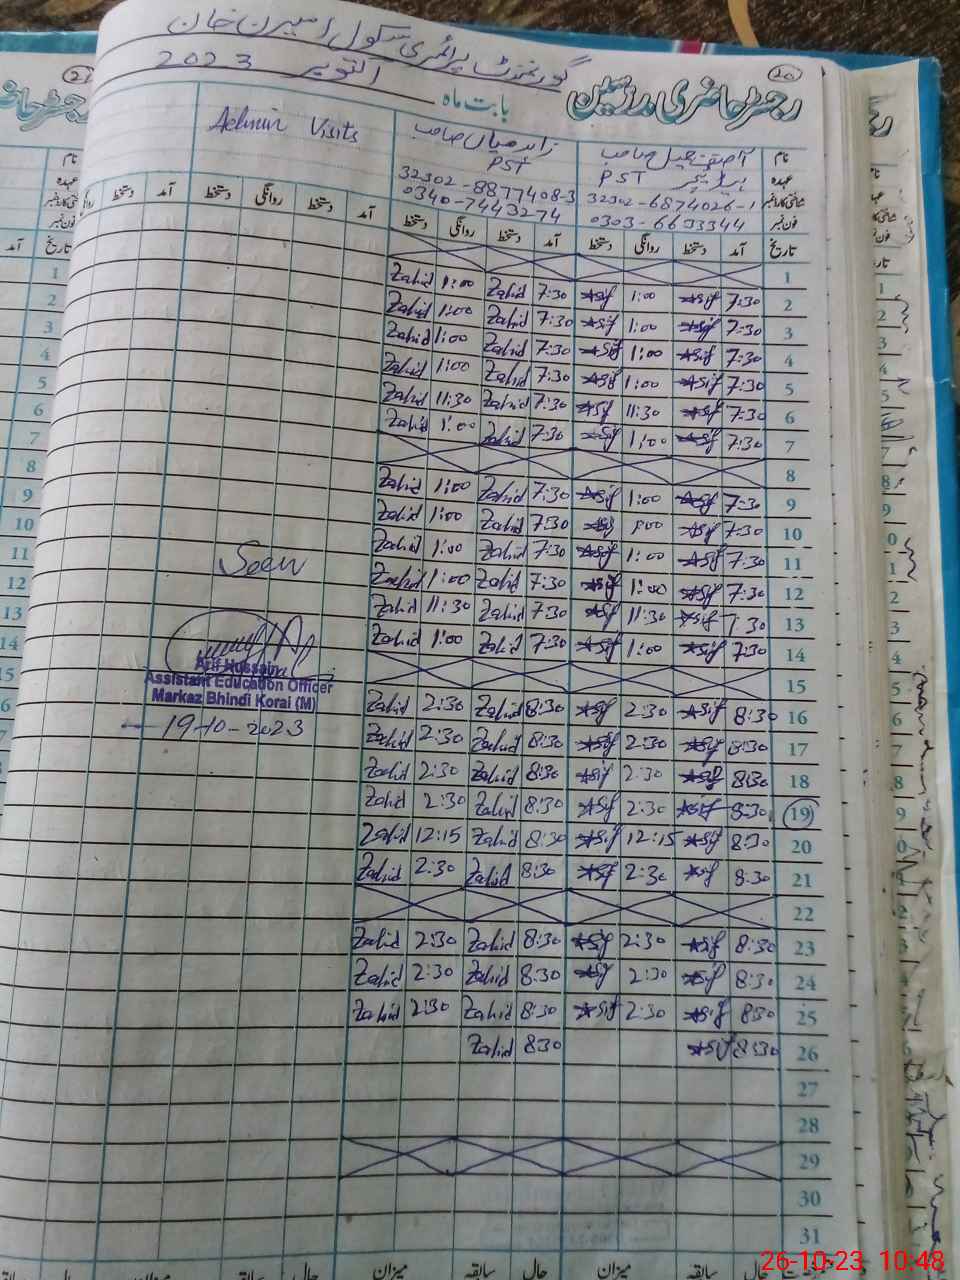 گورنمنٹ پرائمری سکول امیرن خان
رجسٹر حاضری مدرسین بابت ماہ اکتوبر 2023
20
Admin Visits
زاہد میاں صاحب
PST
32302-8877408-3
0340-7443274
PST
32302-6874026-1
0303-6693344
نام
عہدہ
شناختی کارڈ نمبر
فون نمبر
تاریخ آمد دستخط روانگی دستخط آمد دستخط روانگی دستخط آمد دستخط روانگی دستخط آمد دستخط
1
2 7:30 Asif 1:00 Asif 7:30 Zahid 1:00 Zahid
3 7:30 Asif 1:00 Asif 7:30 Zahid 1:00 Zahid
4 7:30 Asif 1:00 Asif 7:30 Zahid 1:00 Zahid
5 7:30 Asif 1:00 Asif 7:30 Zahid 1:00 Zahid
6 7:30 Asif 11:30 Asif 7:30 Zahid 11:30 Zahid
7 7:30 Asif 1:00 Asif 7:30 Zahid 1:00 Zahid
8
9 7:30 Asif 1:00 Asif 7:30 Zahid 1:00 Zahid
10 7:30 Asif 1:00 Asif 7:30 Zahid 1:00 Zahid
11 7:30 Asif 1:00 Asif 7:30 Zahid 1:00 Zahid
12 7:30 Asif 1:00 Asif 7:30 Zahid 1:00 Zahid
13 7:30 Asif 11:30 Asif 7:30 Zahid 11:30 Zahid
14 7:30 Asif 1:00 Asif 7:30 Zahid 1:00 Zahid
15
16 8:30 Asif 2:30 Asif 8:30 Zahid 2:30 Zahid
17 8:30 Asif 2:30 Asif 8:30 Zahid 2:30 Zahid
18 8:30 Asif 2:30 Asif 8:30 Zahid 2:30 Zahid
19 8:30 Asif 2:30 Asif 8:30 Zahid 2:30 Zahid
20 8:30 Asif 12:15 Asif 8:30 Zahid 12:15 Zahid
21 8:30 Asif 2:30 Asif 8:30 Zahid 2:30 Zahid
22
23 8:30 Asif 2:30 Asif 8:30 Zahid 2:30 Zahid
24 8:30 Asif 2:30 Asif 8:30 Zahid 2:30 Zahid
25 8:30 Asif 2:30 Asif 8:30 Zahid 2:30 Zahid
26 8:30 Asif 830 Zahid
27
28
29
30
31
Seen
Arif Hussain
Assistant Education Officer
Markaz Bhindi Korai (M)
19-10-2023
سابقہ حال میزان سابقہ حال میزان
26-10-23, 10:48